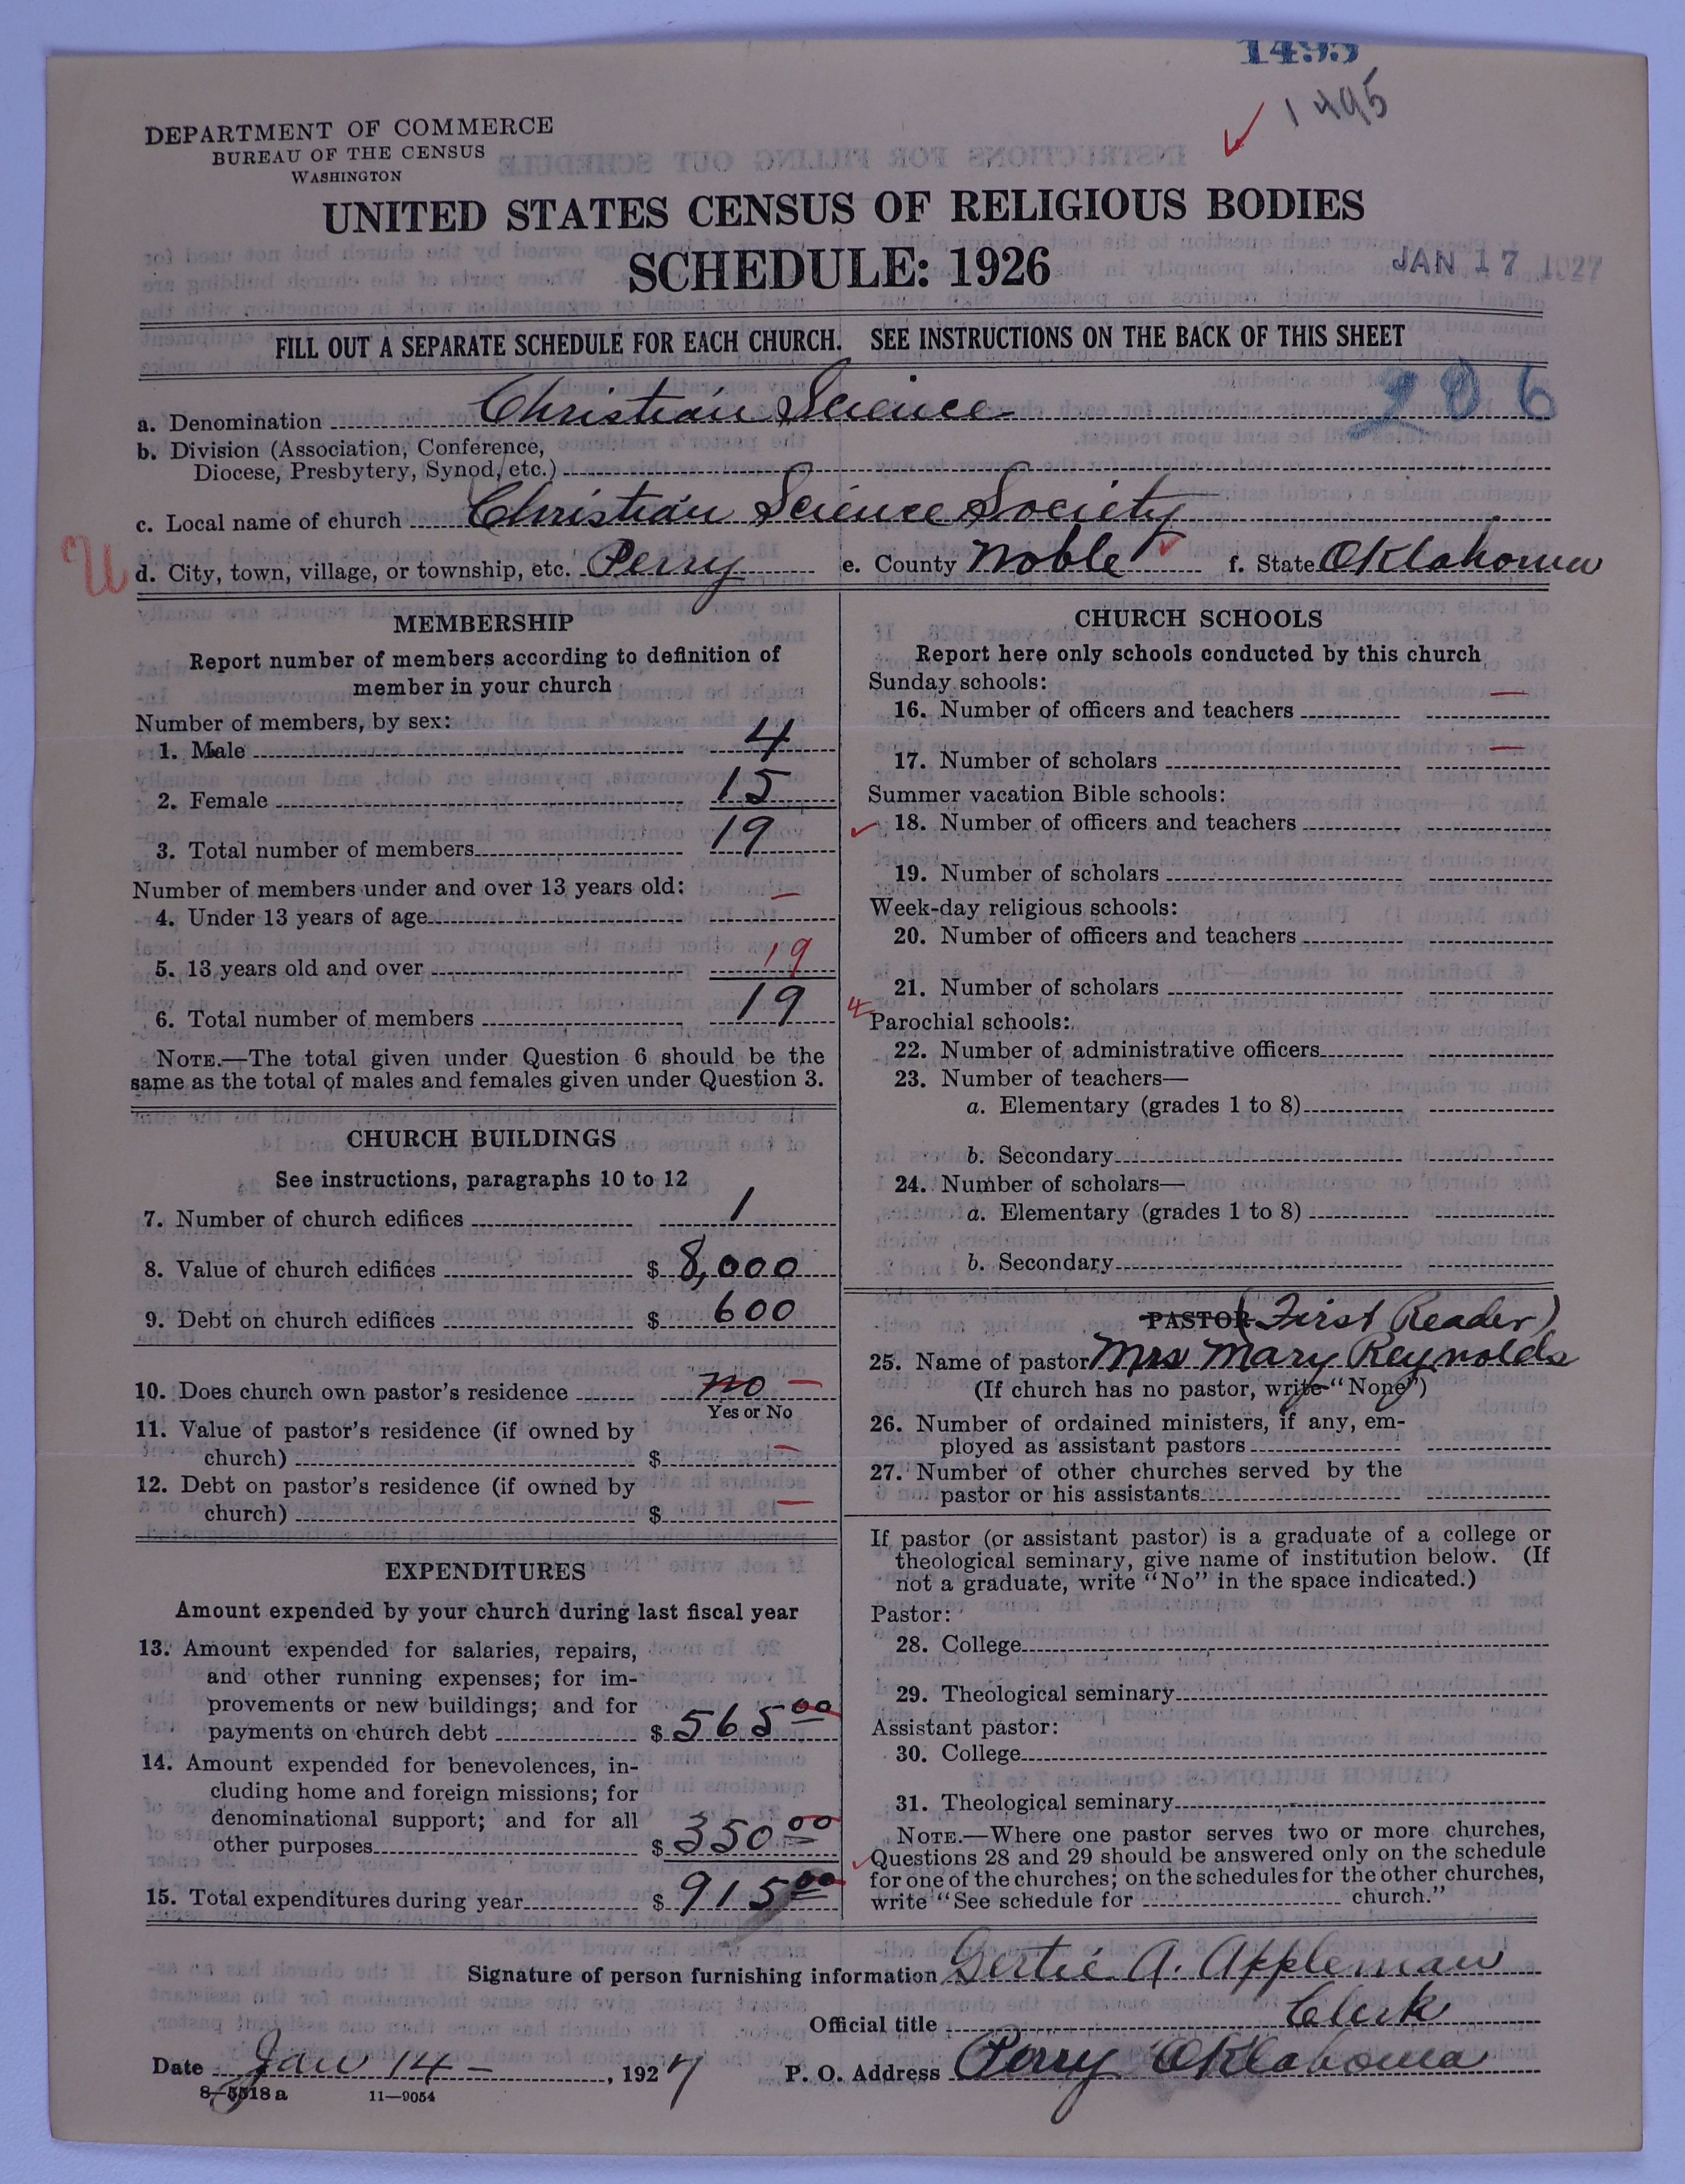 1495
1495
DEPARTMENT OF COMMERCE
BUREAU OF THE CENSUS
WASHINGTON
UNITED STATES CENSUS OF RELIGIOUS BODIES
SCHEDULE: 1926
JAN 17 1927
FILL OUT A SEPARATE SCHEDULE FOR EACH CHURCH. SEE INSTRUCTIONS ON THE BACK OF THIS SHEET
206
a. Denomination Christian Science
b. Division (Association, Conference,
Diocese, Presbytery, Synod, etc.)
c. Local name of church Christian Science Society
U d. City, town, village, or township, etc. Perry e. County Noble f. State Oklahoma
MEMBERSHIP
Report number of members according to definition of
member in your church
Number of members, by sex:
1. Male 4
2. Female 15
3. Total number of members 19
Number of members under and over 13 years old:
4. Under 13 years of age —
5. 13 years old and over 19
6. Total number of members 19
NOTE.—The total given under Question 6 should be the
same as the total of males and females given under Question 3.
CHURCH BUILDINGS
See instructions, paragraphs 10 to 12
7. Number of church edifices 1
8. Value of church edifices $ 8,000
9. Debt on church edifices $ 600
10. Does church own pastor's residence no —
Yes or No
11. Value of pastor's residence (if owned by
church) $ —
12. Debt on pastor's residence (if owned by
church) $ —
EXPENDITURES
Amount expended by your church during last fiscal year
13. Amount expended for salaries, repairs,
and other running expenses; for im-
provements or new buildings; and for
payments on church debt $ 565 00
14. Amount expended for benevolences, in-
cluding home and foreign missions; for
denominational support; and for all
other purposes $ 350 00
15. Total expenditures during year $ 915 00
CHURCH SCHOOLS
Report here only schools conducted by this church
Sunday schools:
16. Number of officers and teachers —
17. Number of scholars —
Summer vacation Bible schools:
18. Number of officers and teachers
19. Number of scholars
Week-day religious schools:
20. Number of officers and teachers
21. Number of scholars
4
Parochial schools:
22. Number of administrative officers
23. Number of teachers—
a. Elementary (grades 1 to 8)
b. Secondary
24. Number of scholars—
a. Elementary (grades 1 to 8)
b. Secondary
PASTOR (First Reader)
25. Name of pastor Mrs Mary Reynolds
(If church has no pastor, write "None")
26. Number of ordained ministers, if any, em-
ployed as assistant pastors
27. Number of other churches served by the
pastor or his assistants
If pastor (or assistant pastor) is a graduate of a college or
theological seminary, give name of institution below. (If
not a graduate, write "No" in the space indicated.)
Pastor:
28. College
29. Theological seminary
Assistant pastor:
30. College
31. Theological seminary
NOTE.—Where one pastor serves two or more churches,
Questions 28 and 29 should be answered only on the schedule
for one of the churches; on the schedules for the other churches,
write "See schedule for church."
Signature of person furnishing information Gertie A. Appleman
Official title Clerk
Date Jan 14 - , 1927 P. O. Address Perry Oklahoma
8-5518 a 11—9054